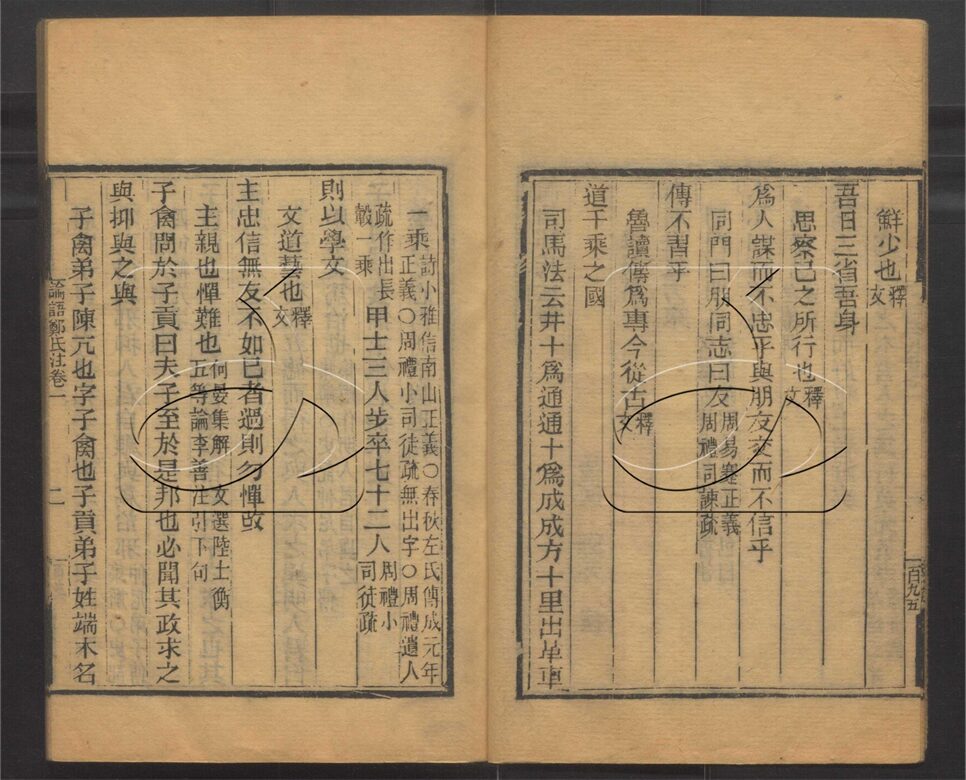 鮮少也釋文
吾日三省吾身
思察己之所行也釋文
爲人謀而不忠乎與朋友交而不信乎
同門曰朋同志曰友周易蹇正義周禮司諫疏
傳不習乎
魯讀傳爲專今從古釋文
道千乘之國
司馬法云井十爲通通十爲成成方十里出革車
百九五
一乘詩小雅信南山正義〇春秋左氏傳成元年正義〇周禮小司徒疏無出字〇周禮遣人疏作出長轂一乘甲士三人步卒七十二人周禮小司徒疏
則以學文
文道藝也釋文
主忠信無友不如已者過則勿憚改
主親也憚難也何晏集解 文選陸士衡五等論李善注引下句
子禽問於子貢曰夫子至於是邦也必聞其政求之
與抑與之與
子禽弟子陳亢也字子禽也子貢弟子姓端木名
論語鄭氏注卷一
二